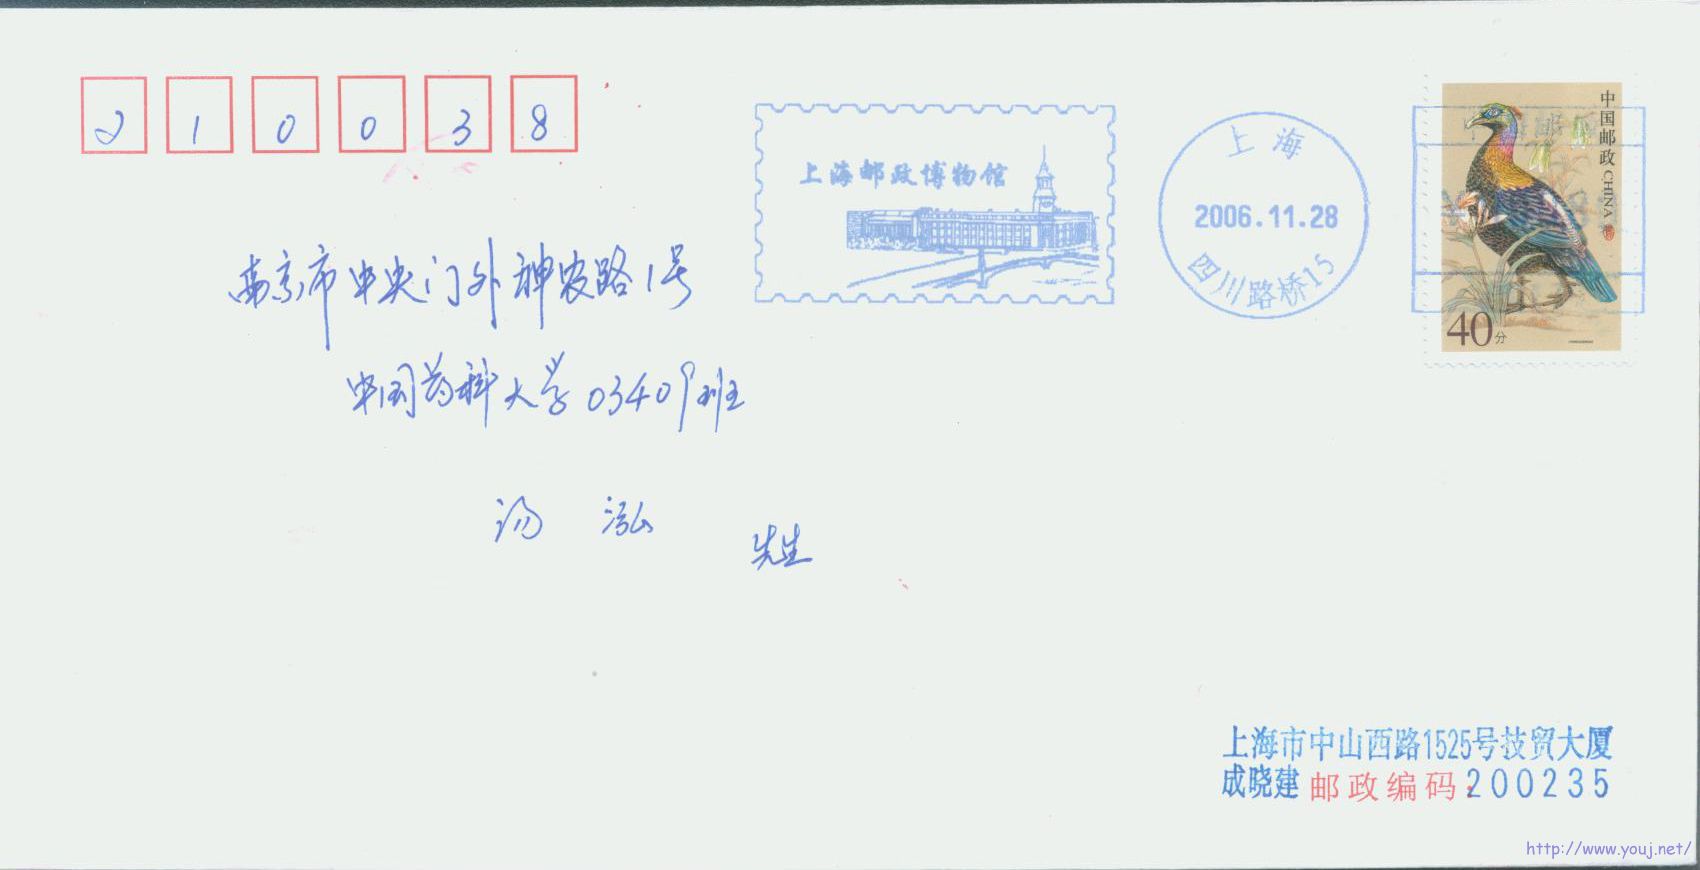 210038
上海邮政博物馆
上海
2006.11.28
四川路桥15
中国邮政 CHINA
40分
南京市中央门外神农路1号
中国药科大学03409班
汤 泓 先生
上海市中山西路1525号技贸大厦
成晓建 邮政编码:200235
http://www.youj.net/